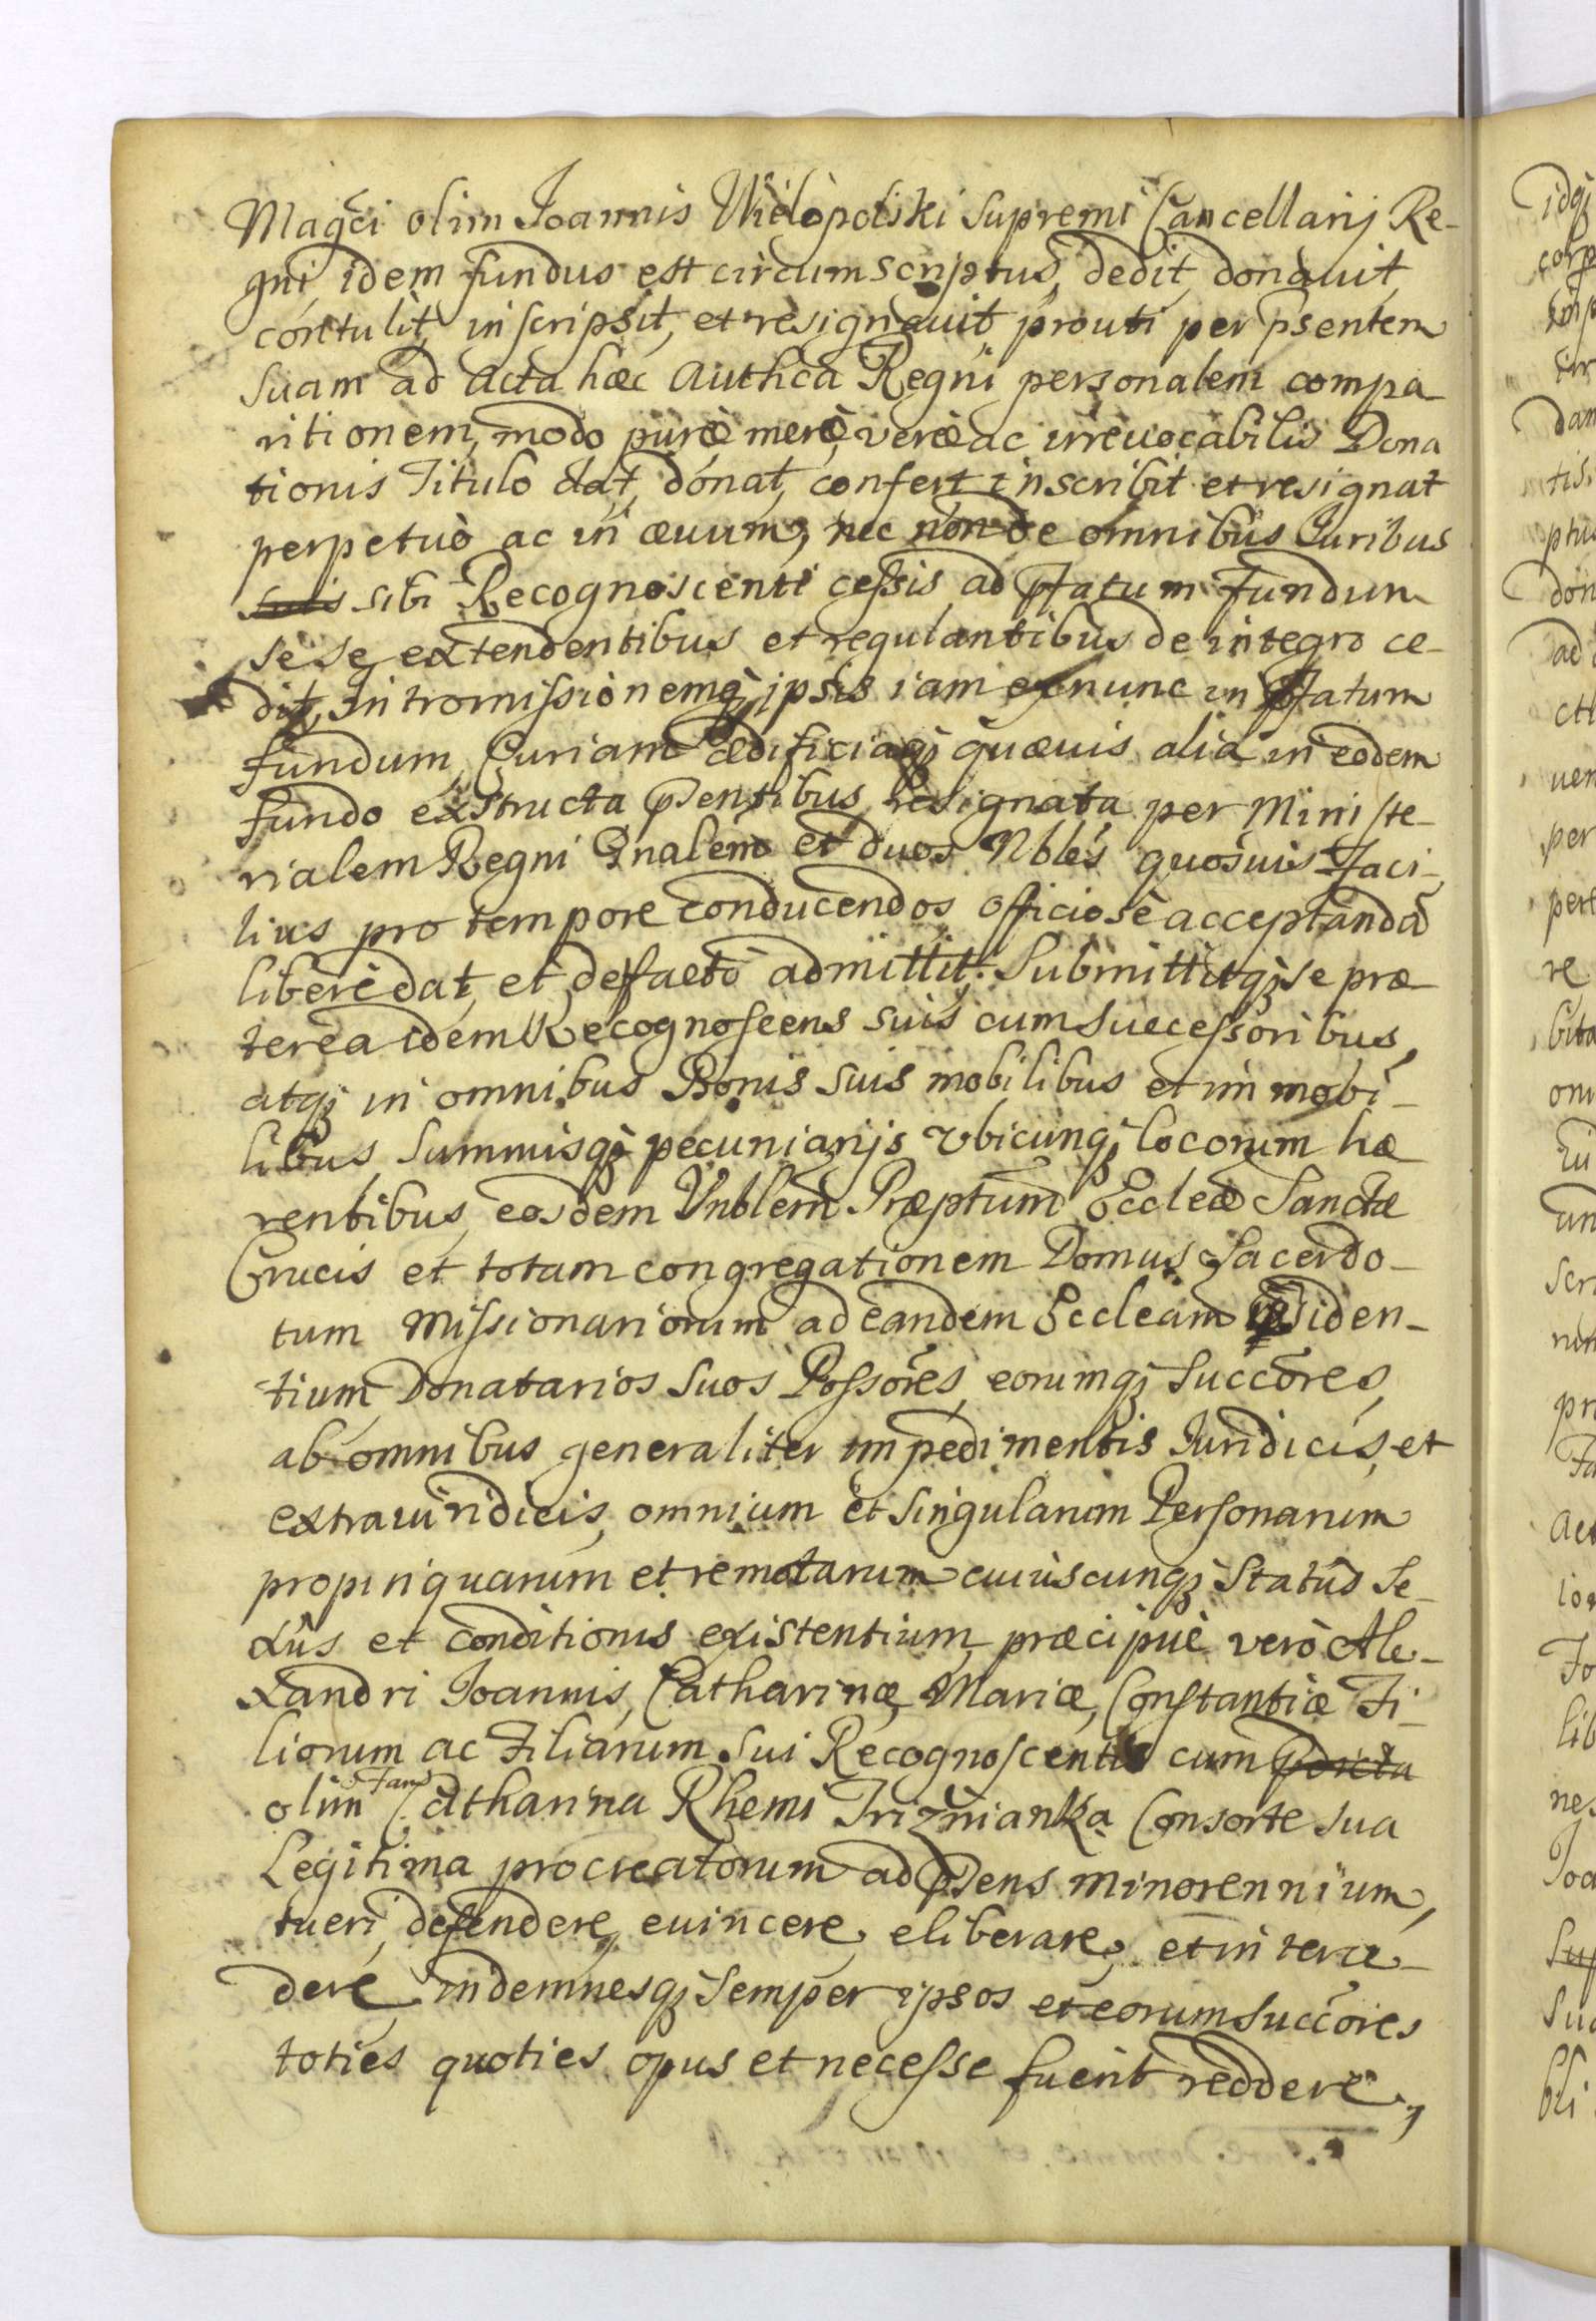 Magci olim Joannis Wielopolski Supremi Cancellarij Re-
gni, idem fundus est circumscriptus, dedit, donauit,
contulit, inscripsit, et resignauit, prouti per psentem
Suam ad Acta hæc Authca Regni personalem compa-
ritionem, modo purè, merè, verè ac irreuocabilis Dona
tionis Titulo dat, donat, confert inscribit et resignat
perpetuò ac in æuum, nec non de omnibus Iuribus
suis sibi Recognoscenti cessis, ad pfatum fundum
sese extendentibus et regulantibus de integro ce-
dit, Intromissionemq; ipsis iam ex nunc in pfatum
fundum, Curiam ædificiaq; quæuis alia in eodem
fundo exstructa psentibus resignata per Ministe-
rialem Regni Gnalem et duos Nbles quosuis faci-
lius pro tempore conducendos, officiosè acceptandã
liberè dat, et de facto admittit. Submittitq; se præ-
terea idem Recognoscens suis cum Successoribus,
atq; in omnibus Bonis suis mobilibus et immobi-
libus, Summisq; pecuniarijs vbicunq; locorum hæ
rentibus, eosdem Vnblem Præptum Eccleæ Sanctæ
Crucis et totam congregationem Domus Sacerdo-
tum Missionariorum ad eandem Eccleam residen-
tium Donatarios suos Possores, eorumq; Succores,
ab omnibus generaliter impedimentis Iuridicis, et
extraiuridicis, omnium et Singularum Personarum
propinquarum et remotarum cuiuscunq; Statûs Se-
xûs et conditionis existentium, præcipuè verò Ale-
xandri Joannis, Catharinæ, Mariæ, Constantiæ Fi-
liorum ac Filiarum sui Recognoscentis cum pdicta
olim Fam Catharina Rhemi Trizñianka Consorte sua
Legitima procreatorum ad psens minorennium,
tueri, defendere, euincere, eliberare, et interce-
dere, indemnesq; semper ipsos et eorum succores
toties quoties opus et necesse fuerit reddere,